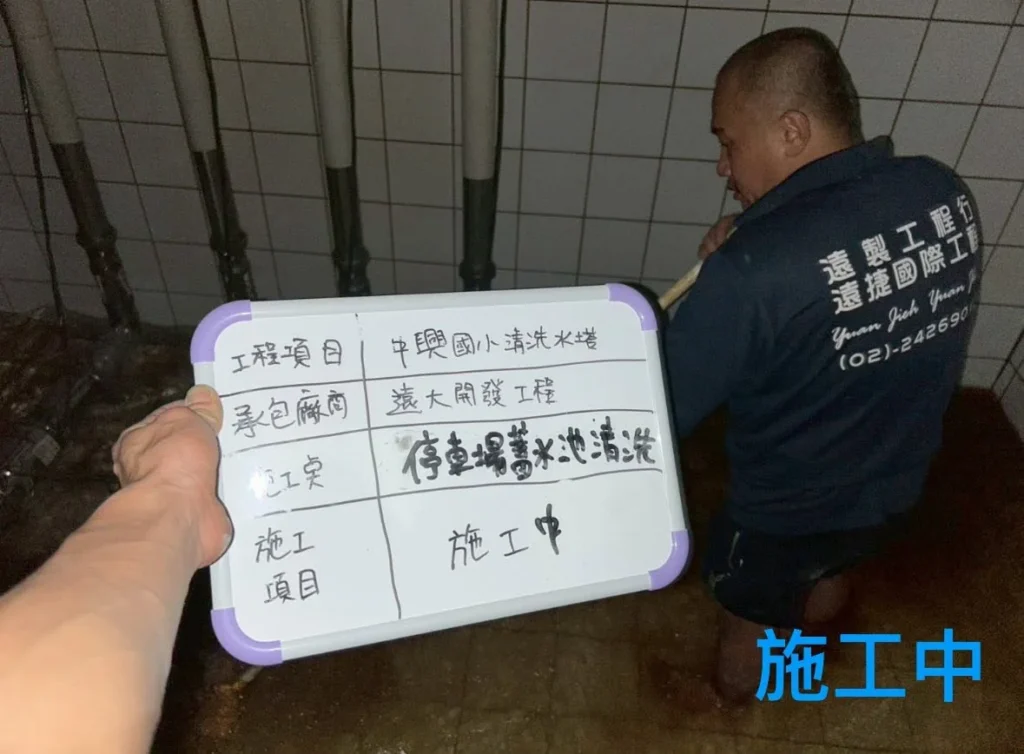 遠製工程行
遠捷國際工程
Yuan Jieh Yuan
(02)-242690
工程項目 中興國小清洗水塔
承包廠商 遠大開發工程
施工點 停車場蓄水池清洗
施工項目 施工中
施工中